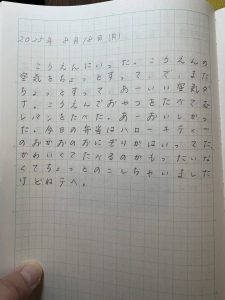 2025年 8月18日(月)
こうえんにいった。こうえんの
空気をちょっとすって、て、また
ちょっとすって、あーいい空気だ
す。こうえんでおやつをたべてむ
しパンをたべた。あーおいしかっ
た。今日の弁当はハローキティー
のおかおのおにぎりがはいってた
かわいくてたべるのがもったいな
くてちょっとのこしちゃいました
けどねテヘ。